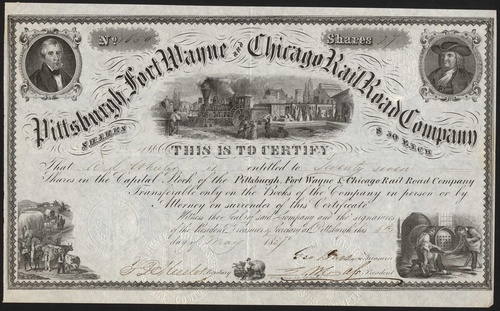 No
Shares
Pittsburgh, Fort Wayne and Chicago Rail Road Company
SHARES $50 EACH
THIS IS TO CERTIFY
That is entitled to Seven
Shares in the Capital Stock of the Pittsburgh, Fort Wayne & Chicago Rail Road Company
Transferable only on the Books of the Company in person or by
Attorney on surrender of this Certificate
Witness the Seal of said Company and the signatures
of the President, Treasurer & Secretary at Pittsburgh this
day of May
Secretary
Treasurer
President